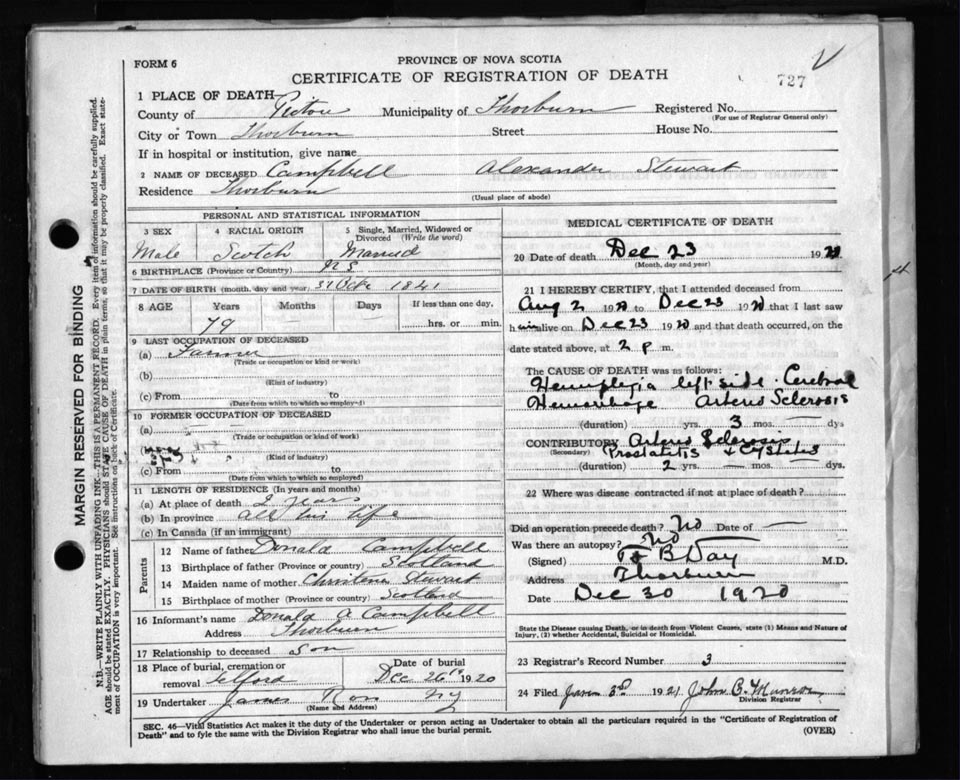 FORM 6
PROVINCE OF NOVA SCOTIA
CERTIFICATE OF REGISTRATION OF DEATH
727
1 PLACE OF DEATH—
County of Pictou Municipality of Thorburn Registered No.
(For use of Registrar General only)
City or Town Thorburn Street House No.
If in hospital or institution, give name
2 NAME OF DECEASED Campbell Alexander Stewart
Residence Thorburn
(Usual place of abode)
MARGIN RESERVED FOR BINDING
N.B.—WRITE PLAINLY WITH UNFADING INK—THIS IS A PERMANENT RECORD. Every item of information should be carefully supplied.
AGE should be stated EXACTLY. PHYSICIANS should STATE CAUSE OF DEATH in plain terms, so that it may be properly classified. Exact state-
ment of OCCUPATION is very important. See instructions on back of Certificate.
PERSONAL AND STATISTICAL INFORMATION
3 SEX 4 RACIAL ORIGIN 5 Single, Married, Widowed or
Divorced (Write the word)
Male Scotch Married
6 BIRTHPLACE (Province or Country) N S
7 DATE OF BIRTH (month, day and year) 1841
8 AGE Years Months Days If less than one day,
79 hrs. or min.
9 LAST OCCUPATION OF DECEASED
(a) Farmer
(Trade or occupation or kind or work)
(b)
(Kind of industry)
(c) From to
(Date from which to which so employed)
10 FORMER OCCUPATION OF DECEASED
(a)
(Trade or occupation or kind of work)
(Kind of industry)
(c) From to
(Date from which to which so employed)
11 LENGTH OF RESIDENCE (In years and months)
(a) At place of death 2 years
(b) In province all his life
(c) In Canada (if an immigrant)
Parents
12 Name of father Donald Campbell
13 Birthplace of father (Province or country) Scotland
14 Maiden name of mother Christena Stewart
15 Birthplace of mother (Province or country) Scotland
16 Informant's name Donald A Campbell
Address Thorburn
17 Relationship to deceased Son
18 Place of burial, cremation or Date of burial
removal Telford Dec 26th 1920
19 Undertaker James Ross N G
(Name and Address)
MEDICAL CERTIFICATE OF DEATH
20 Date of death Dec 23 1920
(Month, day and year)
21 I HEREBY CERTIFY, that I attended deceased from
Aug 2 1920 to Dec 23 1920 that I last saw
him alive on Dec 23 1920 and that death occurred, on the
date stated above, at 2 p m.
The CAUSE OF DEATH was as follows:
Hemiplegia left side. Cerebral
Hemorrhage Arterio Sclerosis
(duration) yrs. 3 mos. — dys
CONTRIBUTORY Arterio Sclerosis
(Secondary) Prostatitis & Cystitis
(duration) 2 yrs. — mos. — dys.
22 Where was disease contracted if not at place of death?
Did an operation precede death? No Date of —
Was there an autopsy? No
(Signed) B Day M.D.
Address Thorburn
Date Dec 30 1920
State the Disease causing Death, or in death from Violent Causes, state (1) Means and Nature of
Injury, (2) whether Accidental, Suicidal or Homicidal.
23 Registrar's Record Number 3
24 Filed Jany 3rd 1921 John B. Munroe
Division Registrar
SEC. 46—Vital Statistics Act makes it the duty of the Undertaker or person acting as Undertaker to obtain all the particulars required in the "Certificate of Registration of
Death" and to fyle the same with the Division Registrar who shall issue the burial permit. (OVER)